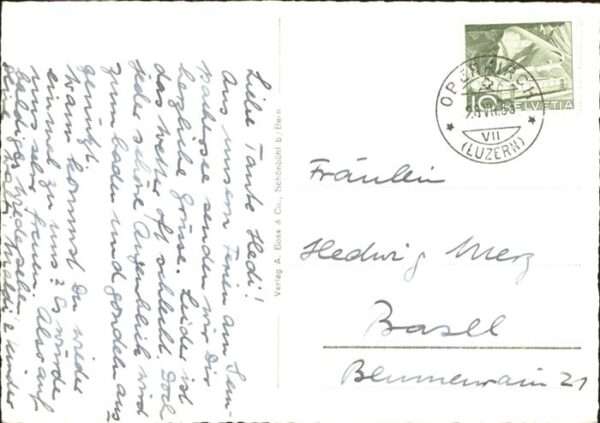 Liebe Tante Hedi!
Aus unsern Ferien am Sem-
pachersee senden wir Dir
herzliche Grüsse. Leider ist
das Wetter oft schlecht. Doch
jeder schöne Augenblick wird
zum baden und gondeln aus
genützt.
Wann kommst Du wieder
einmal zu uns? Es würde
uns sehr freuen. Also auf
baldiges Wiedersehen
Kinder
Verlag A. Boss & Co., Schönbühl b. Bern
10 HELVETIA
VII
(LUZERN)
Fräulein
Hedwig Merz
Basel
Blumenrain 21